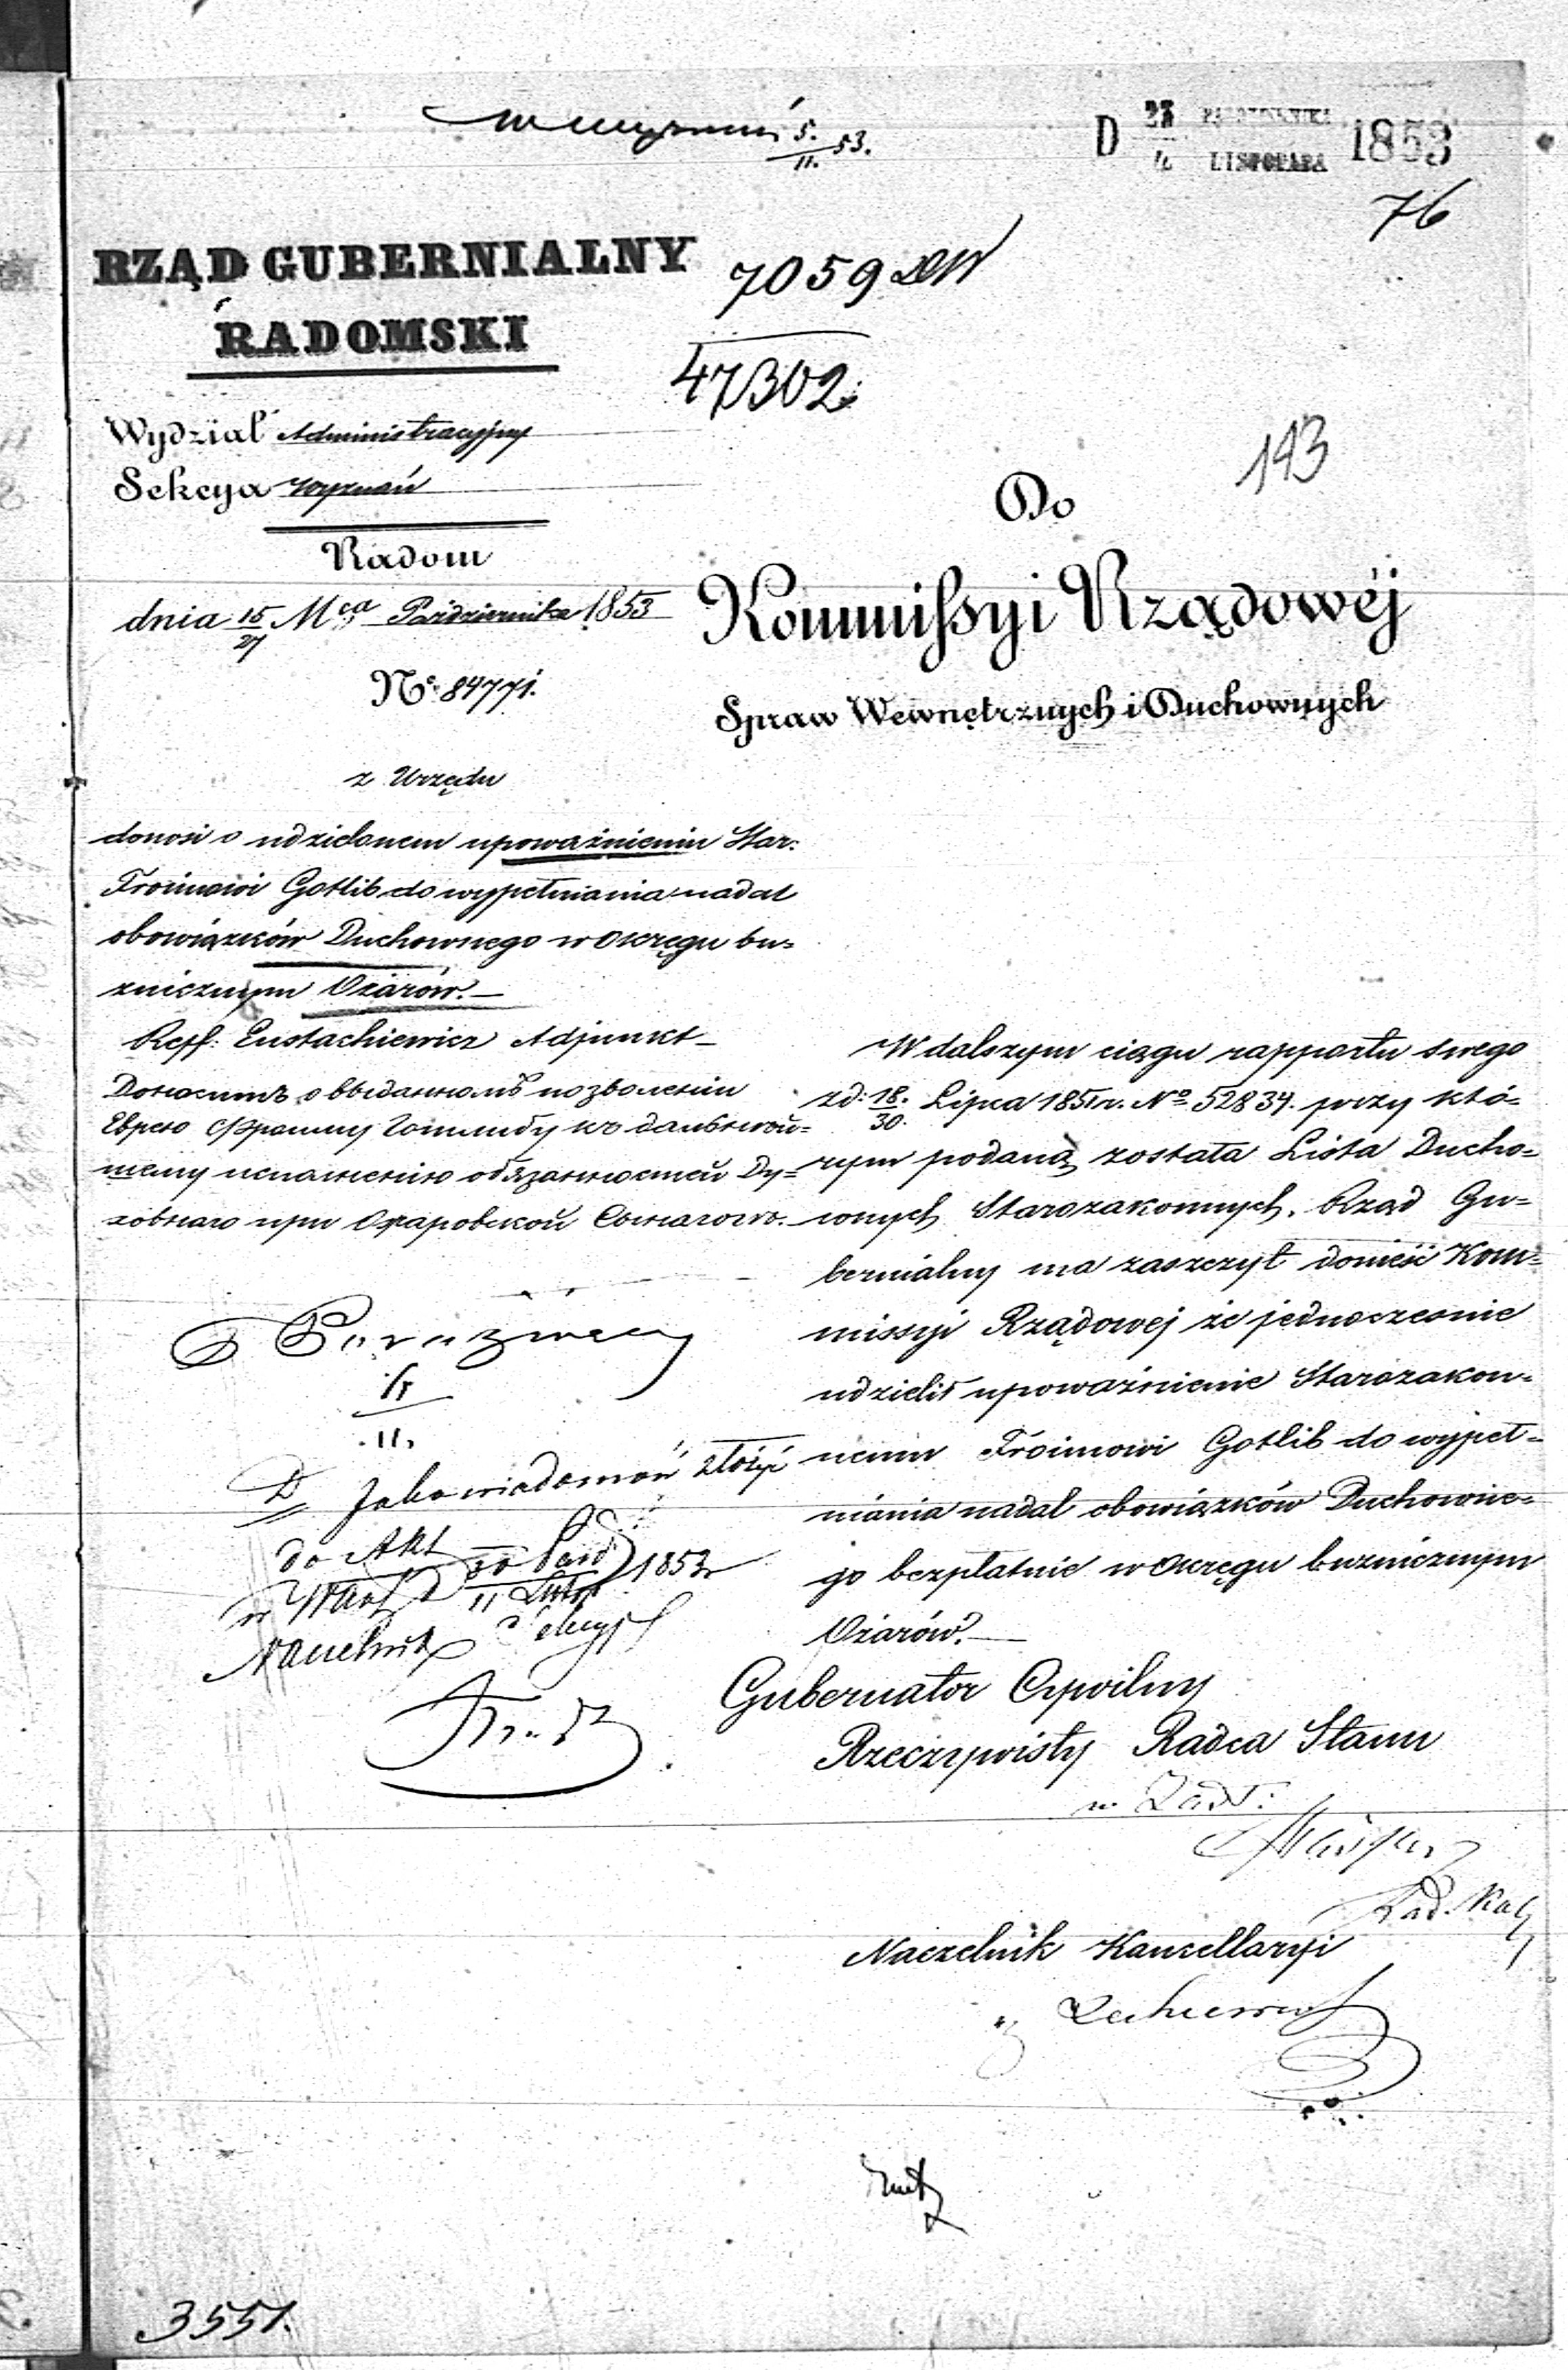 5. 53.
11.
D 23 PAZDZIERNIKA 1853
4 LISTOPADA
76
RZĄD GUBERNIALNY
RADOMSKI
7059
47302
Wydział Administracyjny
Sekcya Wyznań
193
Radom
dnia 15/27 Mca Października 1853
No 84771.
Do
Kommissyi Rządowéj
Spraw Wewnętrznych i Duchownych
z Urzędu
donosi o udzielonem upoważnieniu Star:
Froimowi Gotlib do wypełniania nadal
obowiązków Duchownego w Okręgu bu=
znicznym Ożarów.—
Reff: Eustachiewicz Adjunkt—
Доноситъ о выданномъ позволении
Еврею Фроиму Готлибу къ дальней=
шему исполнению обязанностей Ду=
ховнаго при Ожаровской Синагогѣ.
11.
D Jako wiadomość złożyć
do Akt
1853
Naczelnik
W dalszym ciągu rapportu swego
z d: 18./30. Lipca 1851 r. No 52834. przy któ=
rym podaną została Lista Ducho=
wnych Starozakonnych. Rząd Gu=
bernialny ma zaszczyt donieść Kom=
missyi Rządowej że jednocześnie
udzielił upoważnienie Starozakon=
nemu Froimowi Gotlib do wypeł=
niania nadal obowiązków Duchowne=
go bezpłatnie w Okręgu buznicznym
Ożarów.—
Gubernator Cywilny
Rzeczywisty Radca Stanu
Naczelnik Kancellaryi
3551.